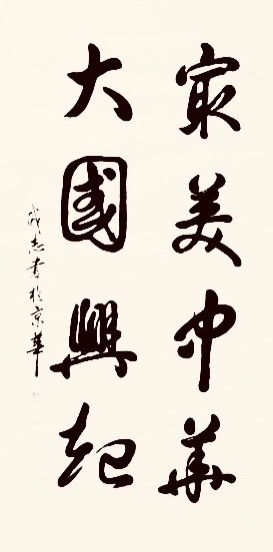 最美中華
大國興起
成志書於京華